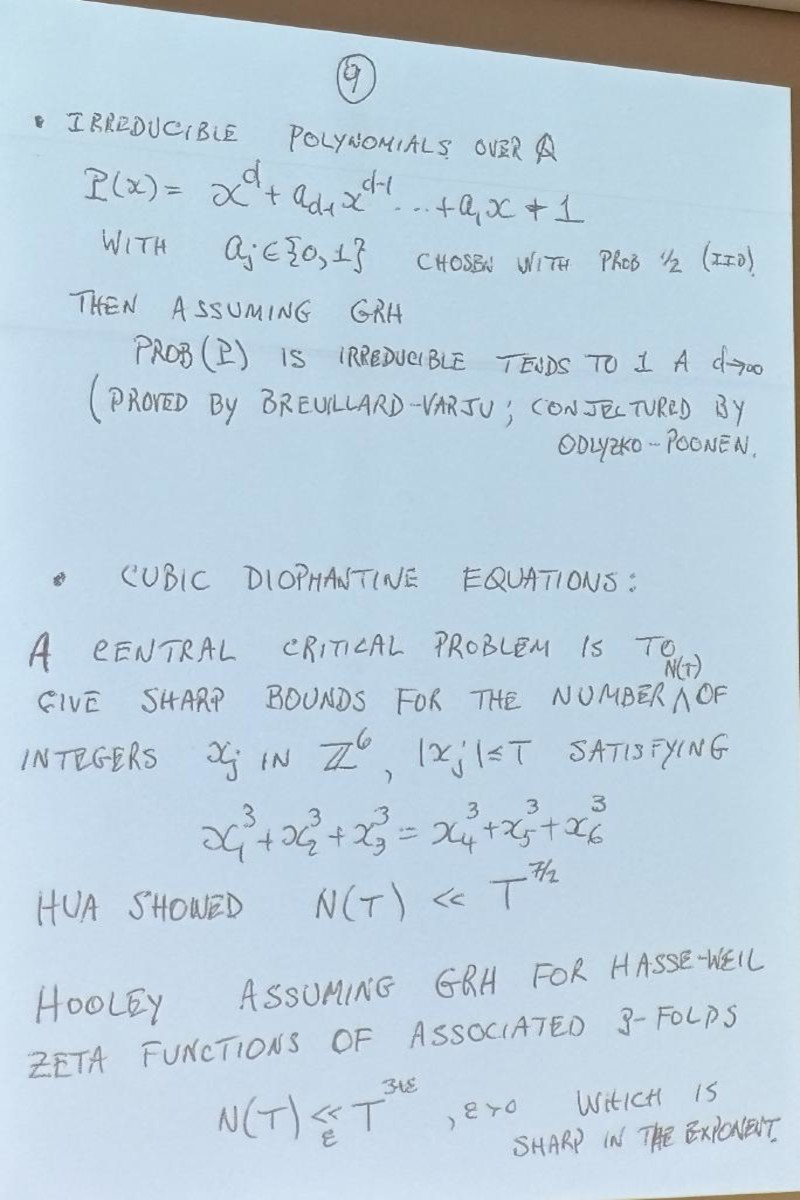 9
• IRREDUCIBLE POLYNOMIALS OVER ℚ
P(x) = x^d + a_{d-1} x^{d-1} ... + a_1 x + 1
WITH a_j ∈ {0,1} CHOSEN WITH PROB 1/2 (IID).
THEN ASSUMING GRH
PROB(P) IS IRREDUCIBLE TENDS TO 1 A d→∞
(PROVED BY BREUILLARD-VARJU; CONJECTURED BY
ODLYZKO-POONEN.
• CUBIC DIOPHANTINE EQUATIONS:
A CENTRAL CRITICAL PROBLEM IS TO
GIVE SHARP BOUNDS FOR THE NUMBER ∧ N(T) OF
INTEGERS x_j IN ℤ^6, |x_j| ≤ T SATISFYING
x_1^3 + x_2^3 + x_3^3 = x_4^3 + x_5^3 + x_6^3
HUA SHOWED N(T) << T^{7/2}
HOOLEY ASSUMING GRH FOR HASSE-WEIL
ZETA FUNCTIONS OF ASSOCIATED 3-FOLDS
N(T) <<_ε T^{3+ε}, ε>0 WHICH IS
SHARP IN THE EXPONENT.